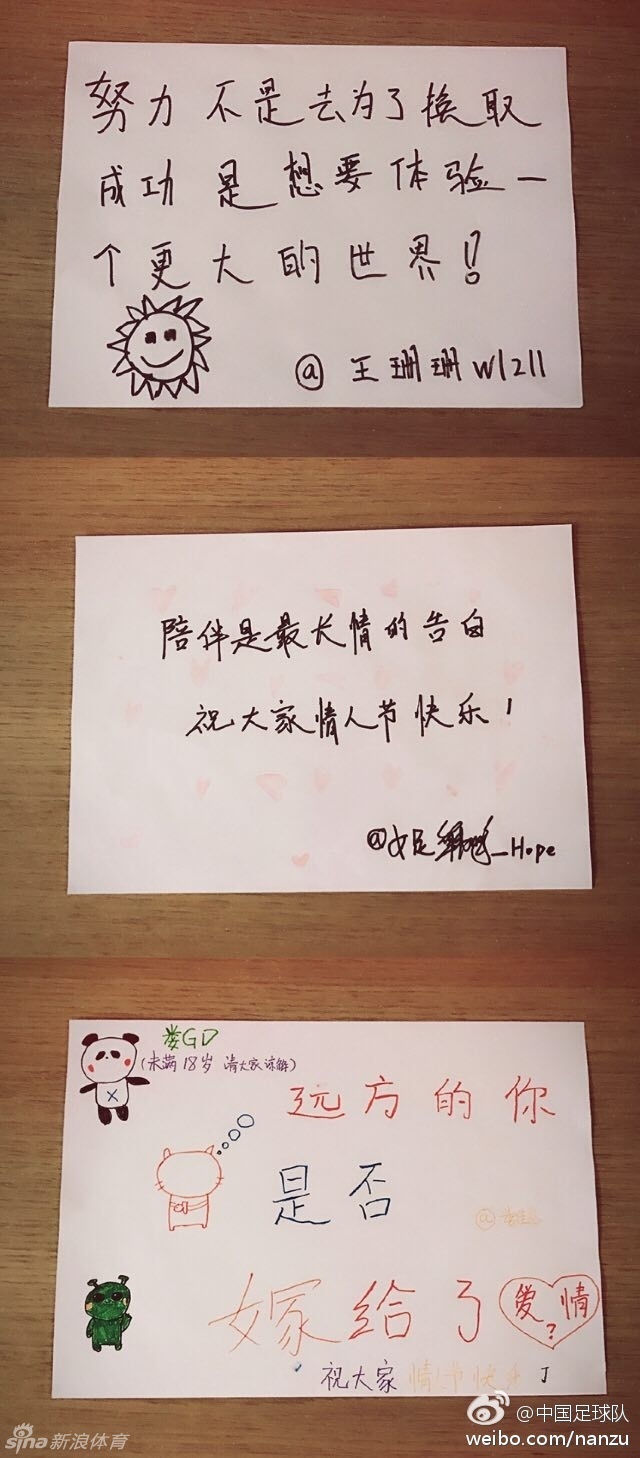 努力不是去为了换取
成功是想要体验一
个更大的世界!
@王珊珊W1211
陪伴是最长情的告白
祝大家情人节快乐!
@女足_Hope
娄GD
(未满18岁 请大家谅解)
远方的你
是否
@娄佳惠
嫁给了爱情
?
祝大家情人节快乐 J
sina新浪体育
@中国足球队
weibo.com/nanzu